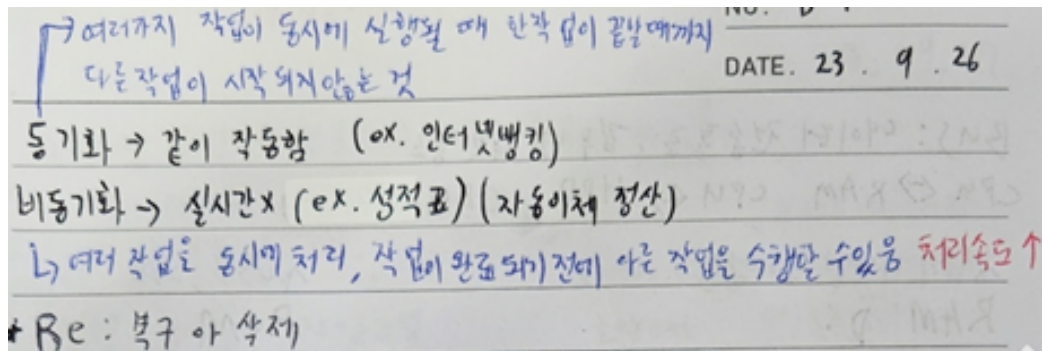 → 여러가지 작업이 동시에 실행될 때 한작업이 끝날때까지
다른작업이 시작되지않는 것
DATE. 23 . 9 . 26
동기화 → 같이 작동함 (ex. 인터넷뱅킹)
비동기화 → 실시간x (ex. 성적표) (자동이체 정산)
↳ 여러 작업을 동시에 처리, 작업이 완료되기전에 다른 작업을 수행할 수있음 처리속도↑
Re : 복구 or 삭제